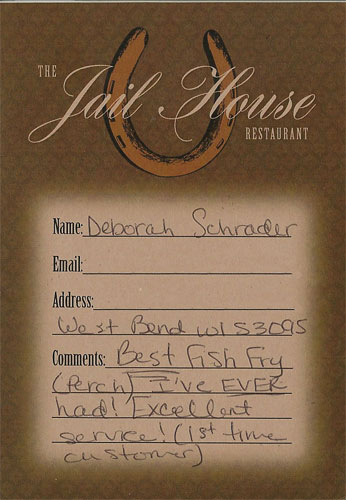 THE
Jail House
RESTAURANT
Name: Deborah Schrader
Email:
Address:
West Bend WI 53095
Comments: Best Fish Fry
(Perch) I've EVER
had! Excellent
service! (1st time
customer)